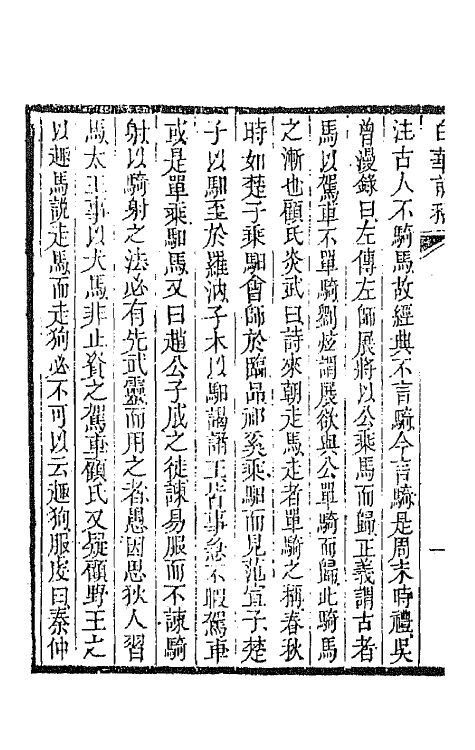 白華前稿
注古人不騎馬故經典不言騎今言騎是周末時禮吳
曾漫錄曰左傳左師展將以公乘馬而歸正義謂古者
馬以駕車不單騎劉炫謂展欲與公單騎而歸此騎馬
之漸也顧氏炎武曰詩來朝走馬走者單騎之稱春秋
時如楚子乘馹會師於臨品祁奚乘馹而見范宣子楚
子以馹至於羅汭子木以馹謁諸王皆事急不暇駕車
或是單乘馹馬又曰趙公子成之徒諫易服而不諫騎
射以騎射之法必有先武靈而用之者愚因思狄人習
馬太王事以犬馬非止資之駕車顧氏又疑顧野王之
以趣馬說走馬而走狗必不可以云趣狗服虔曰秦仲